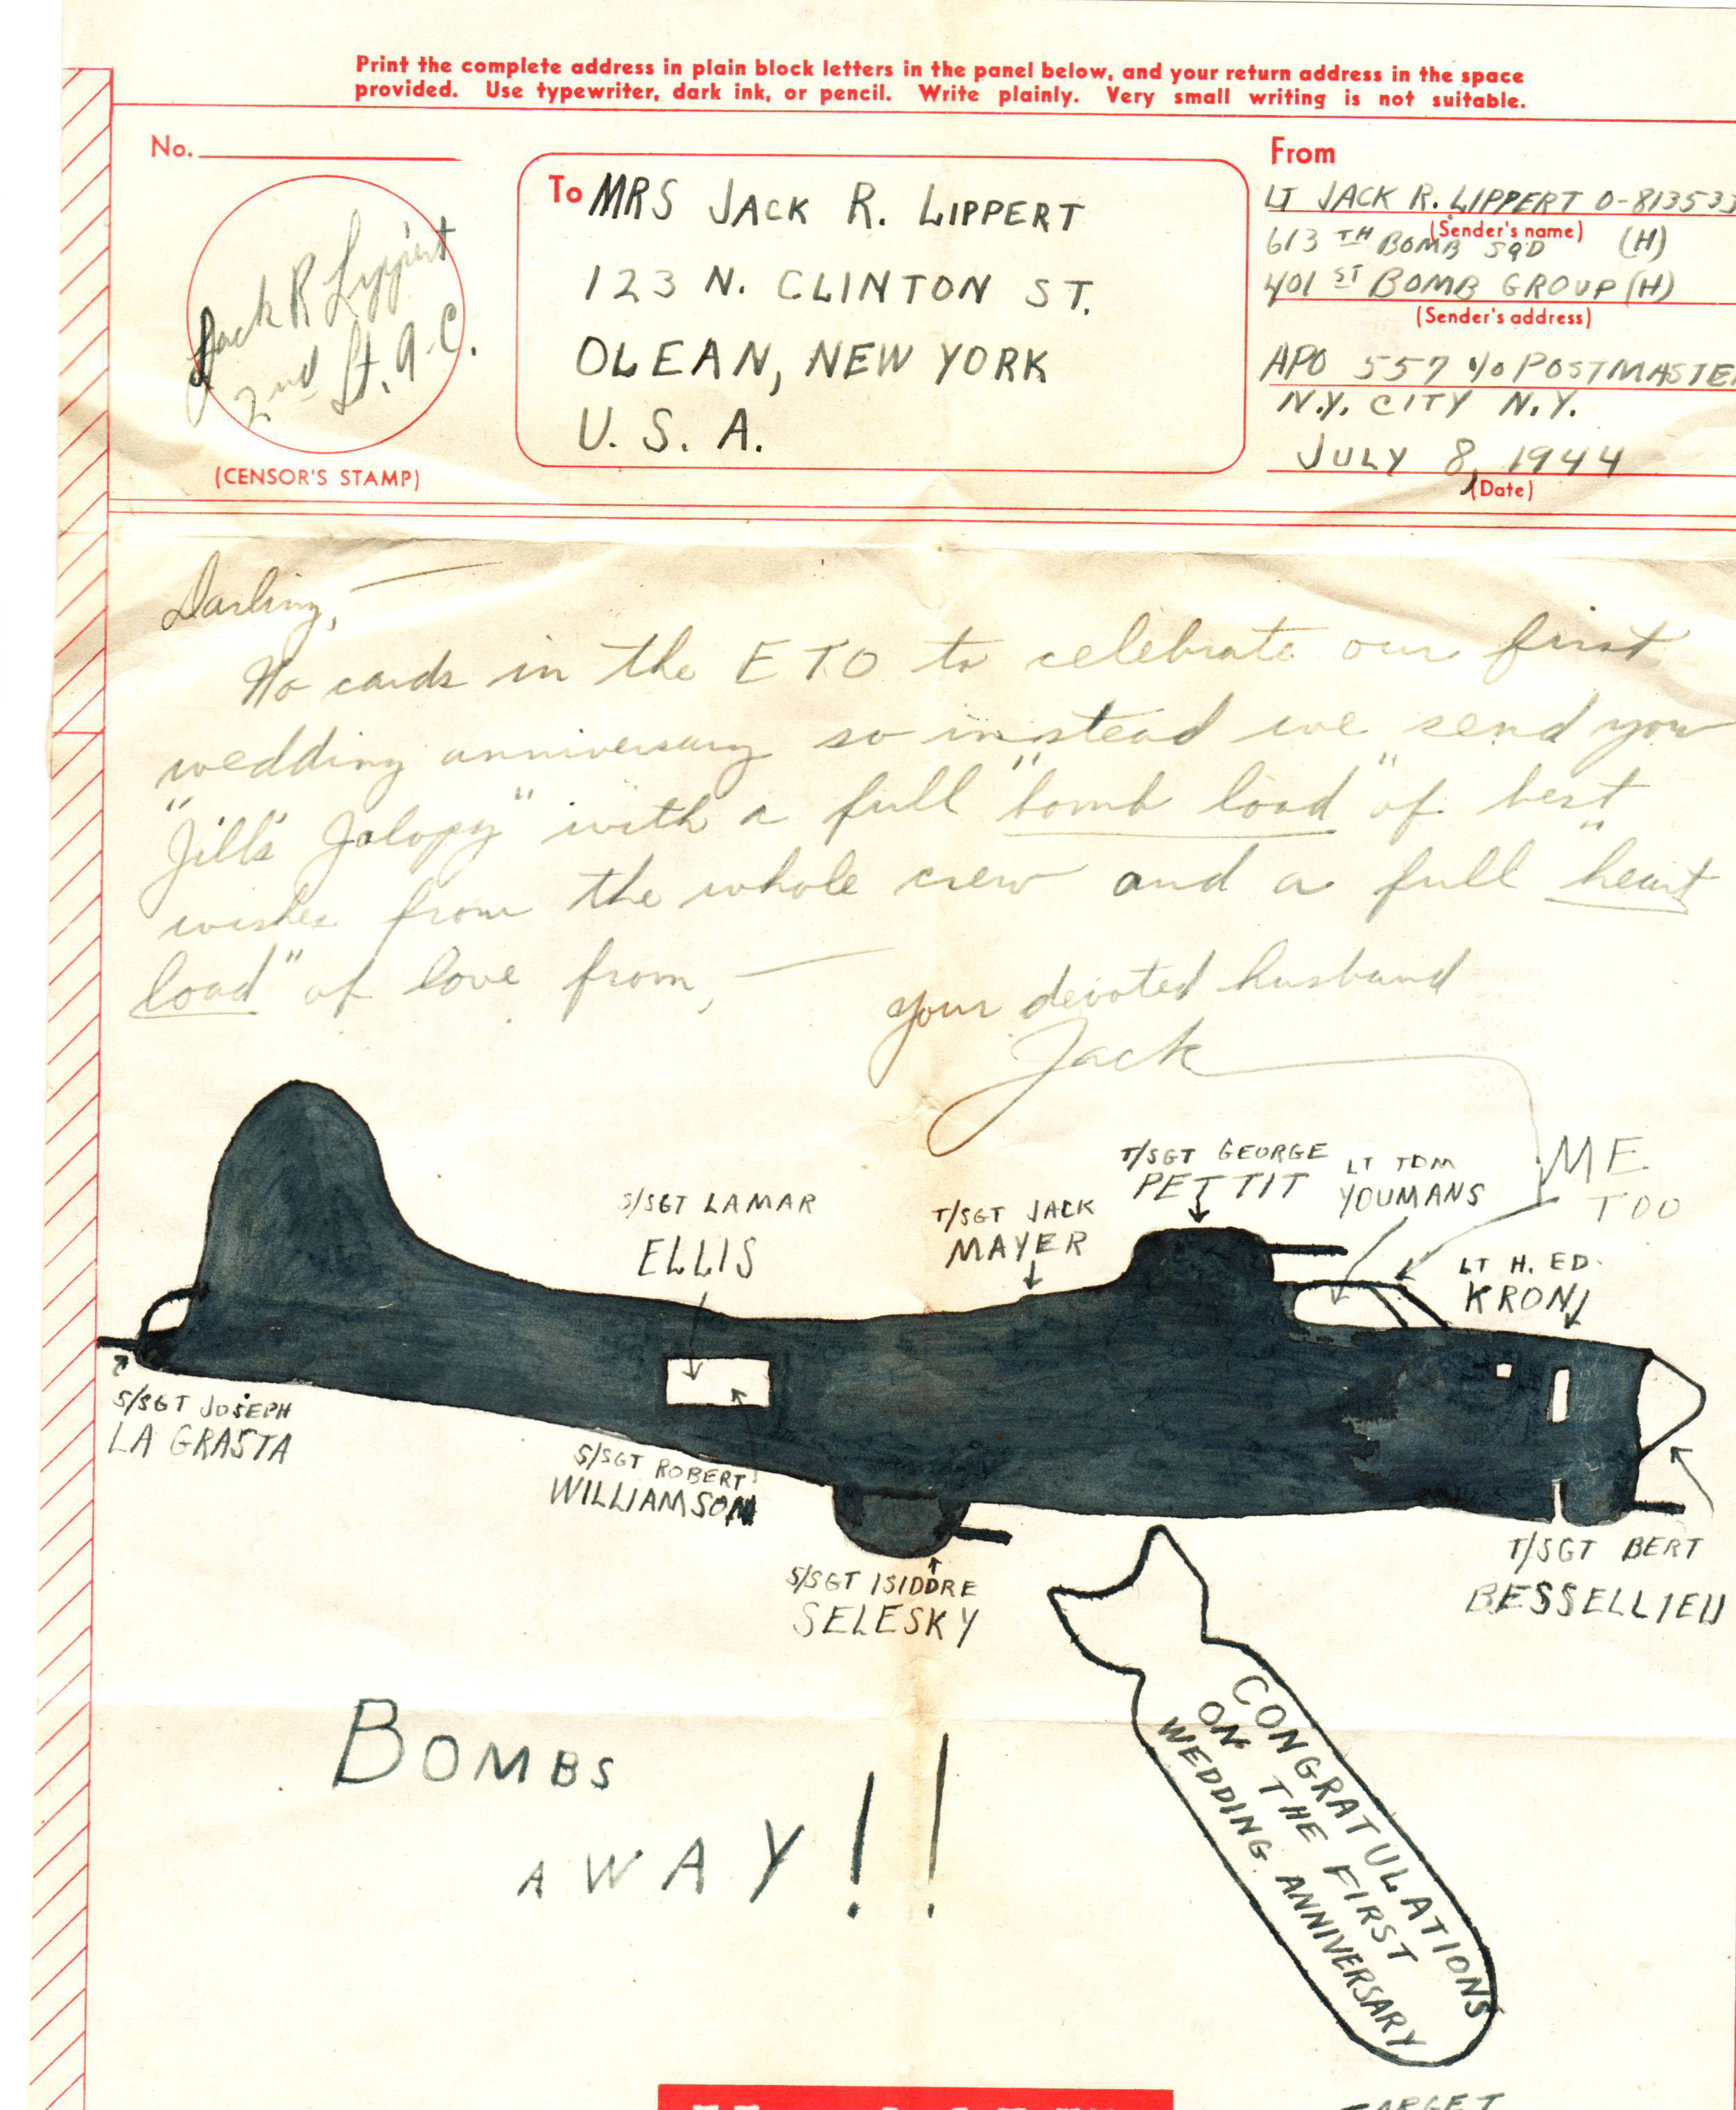 Print the complete address in plain block letters in the panel below, and your return address in the space
provided. Use typewriter, dark ink, or pencil. Write plainly. Very small writing is not suitable.
No.
Jack R Lippert
2nd Lt. A.C.
(CENSOR'S STAMP)
To MRS JACK R. LIPPERT
123 N. CLINTON ST.
OLEAN, NEW YORK
U. S. A.
From
LT JACK R. LIPPERT O-813533
(Sender's name)
613 TH BOMB SQD (H)
401 ST BOMB GROUP (H)
(Sender's address)
APO 557 c/o POSTMASTE
N.Y. CITY N.Y.
JULY 8, 1944
(Date)
Darling, —
No cards in the ETO to celebrate our first
wedding anniversary so instead we send you
"Jill's Jalopy" with a full "bomb load" of best
wishes from the whole crew and a full "heart
load" of love from, —
your devoted husband
Jack
ME
TOO
T/SGT GEORGE
PETTIT
LT TOM
YOUMANS
S/SGT LAMAR
ELLIS
T/SGT JACK
MAYER
LT H. ED.
KRON
S/SGT JOSEPH
LA GRASTA
S/SGT ROBERT
WILLIAMSON
S/SGT ISIDORE
SELESKY
T/SGT BERT
BESSELLIEU
BOMBS
AWAY!!
CONGRATULATIONS
ON THE FIRST
WEDDING ANNIVERSARY
TARGET